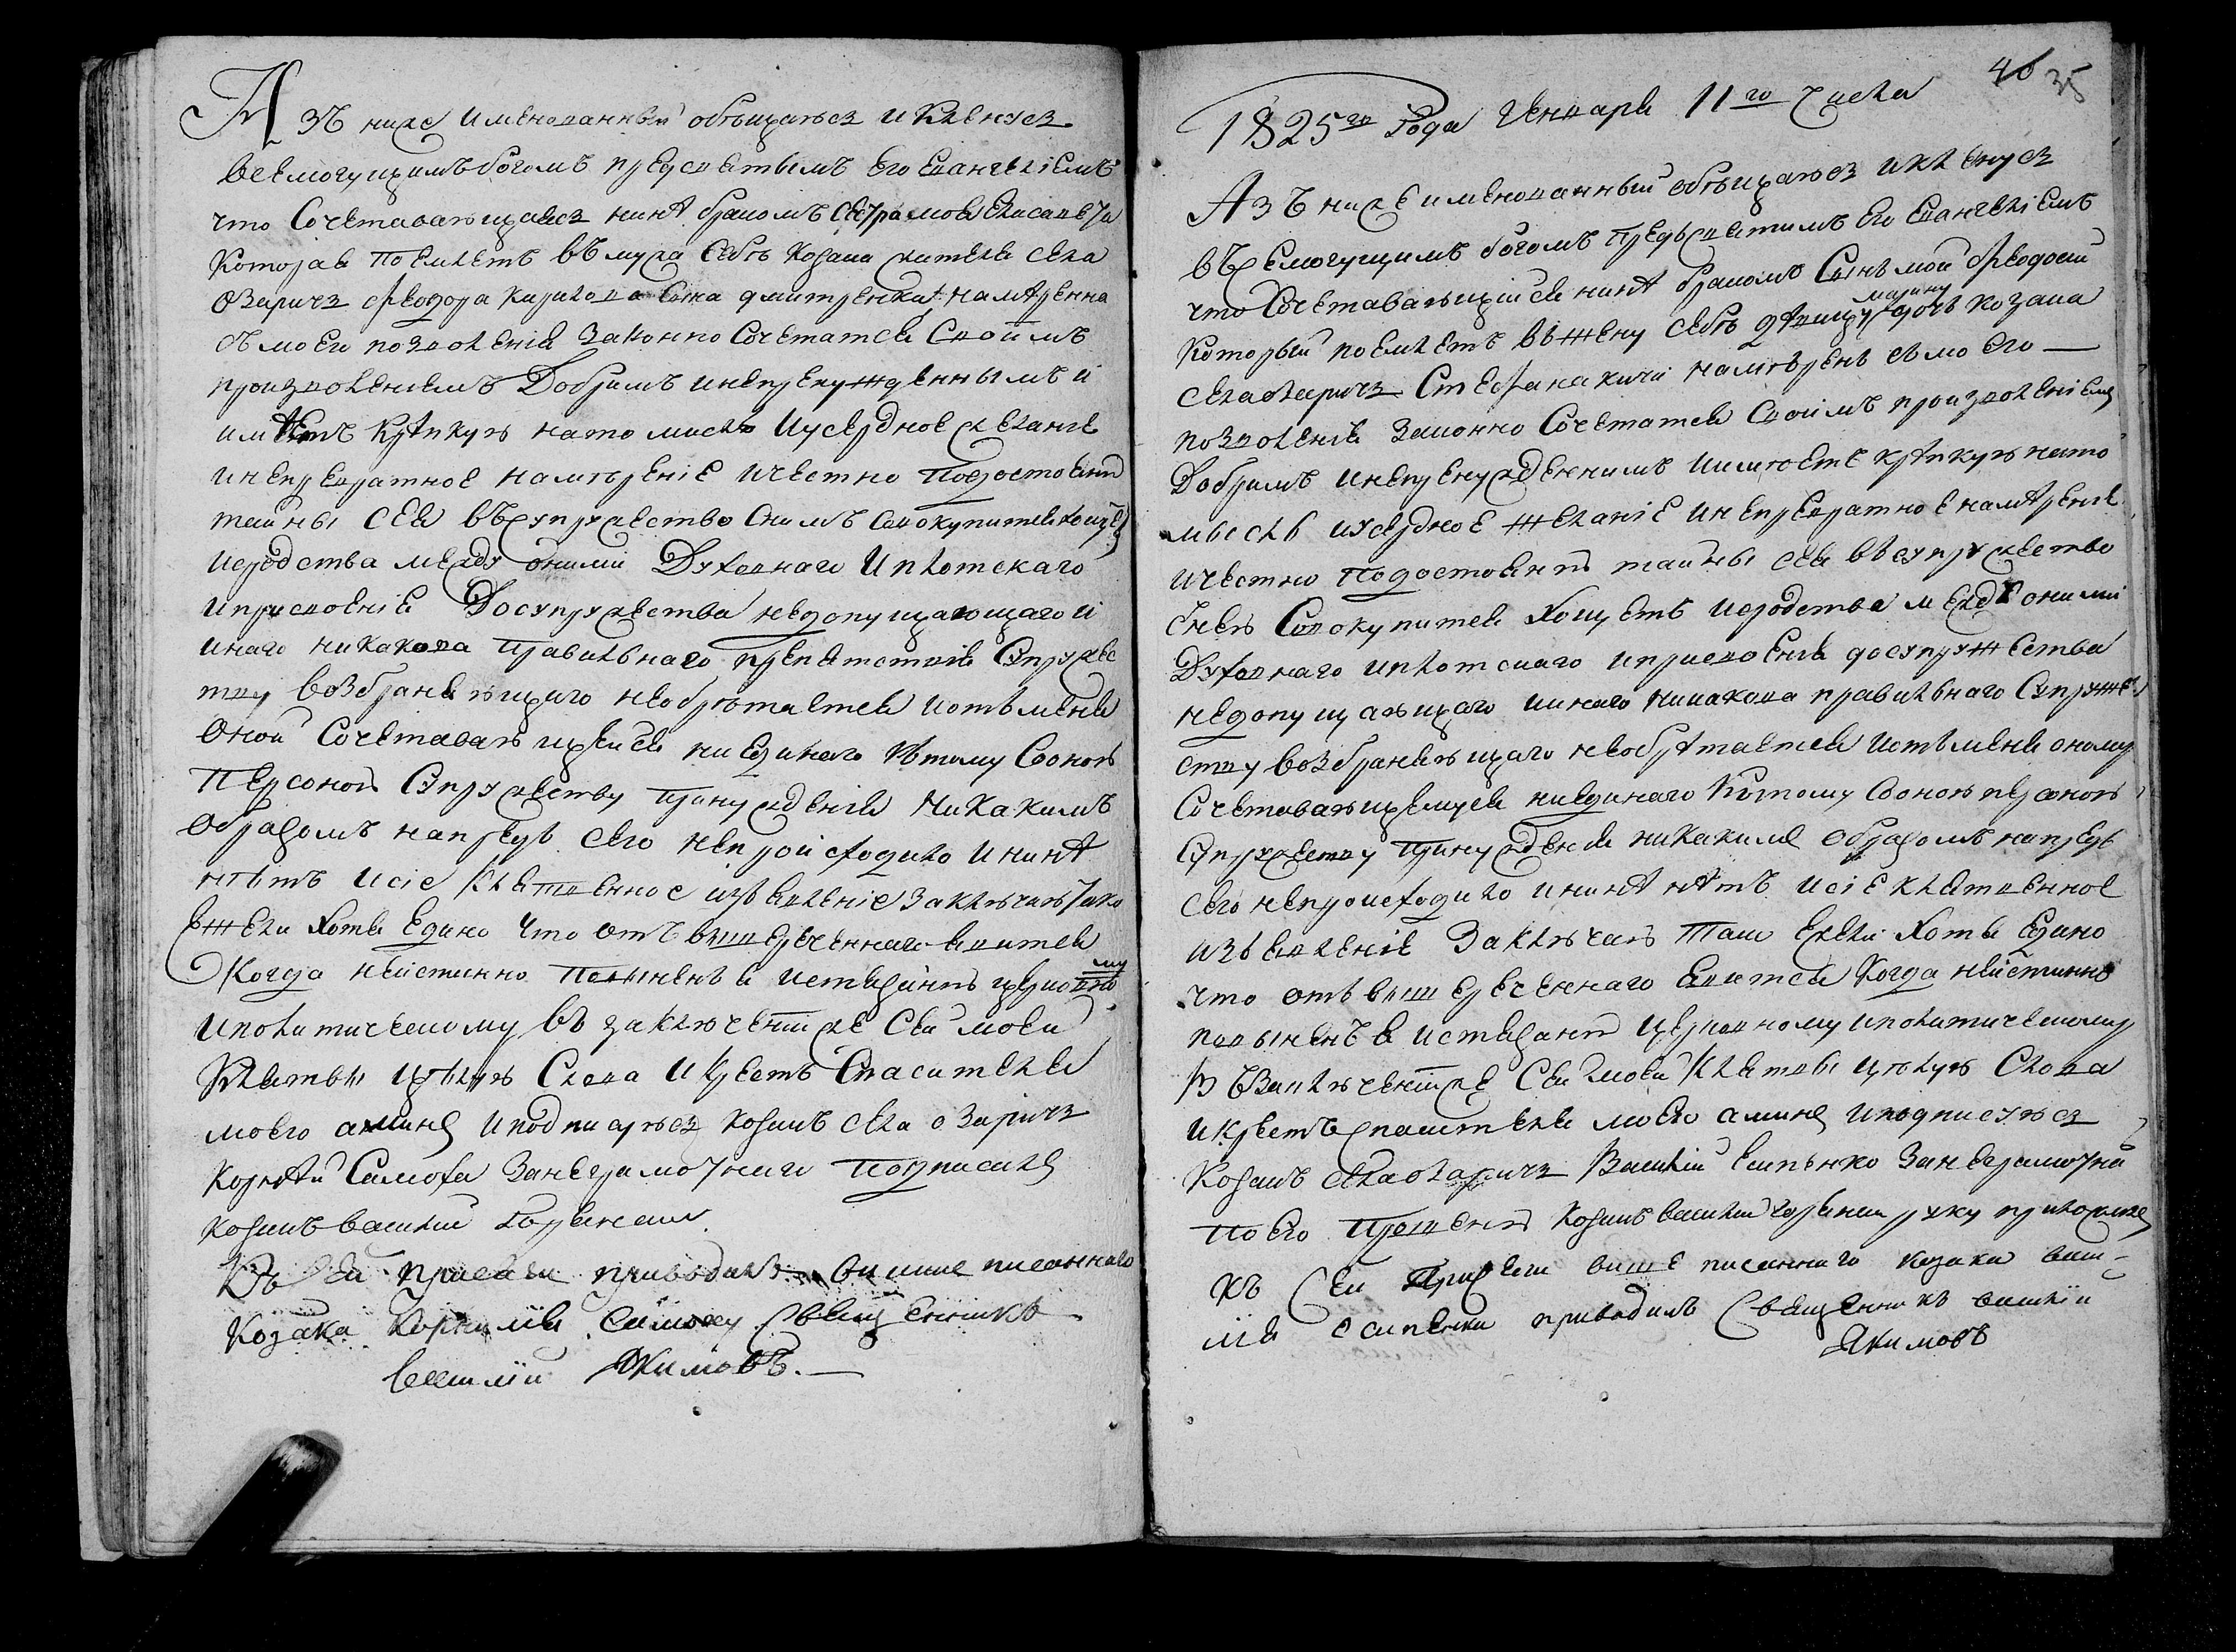 Азъ ниже именованный обѣщаюся и кленуся
всемогущимъ богомъ предъ святымъ его евангелiемъ
что сочетавающаяся нинѣ бракомъ сестра моя елисавета
которая поемлетъ въ мужа себѣ козака жителя села
озарича феодора кирилова сина дмитренка намѣренна
съ моего позволенiя законно сочетатся своимъ
произволенiемъ добримъ и непренужденнымъ и
имѣетъ крѣпкую на то мисль и усердное желанiе
и непревратное намѣренiе и честно по достоянiю
тайны сея въ супружество снимъ совокупитися хощетъ
и сродства между оними духовнаго и плотскаго
и присвоенiя до супружества недопущающаго и
инаго никакова правилнаго препятствiя супружес
тву возбраняющаго необрѣтается и отъ меня
оной сочетавающейся ни единаго къ тому со оною
персоною супружеству принужденiя никакимъ
образомъ напредъ сего непроисходило и нинѣ
нѣтъ и сiе клятвенное изъявленiе заключаю тако
ежели хотя едино что отъ вышереченнаго явится
когда неистинно повиненъ я истязанiю церковному
и политическому въ заключенiи же сей моей
клятвы цѣлую слова и крестъ спасителя
моего аминь и подписуюся козакъ села озарича
корнѣй Самоха за неграмотнаго подписалъ
козакъ василiй
Къ сей присяги приводилъ више писаннаго
козака Корнилiя Самоху священникъ
василiй Якимовъ.
46 35
1825го года генваря 11го числа
Азъ ниже именованный обѣщаюся и кленуся
всемогущимъ богомъ предъ святимъ его евангелiемъ
что сочетавающiйся нинѣ бракомъ синъ мой феодосiй
марину
который поемлетъ въ жену себѣ дѣвицу дочь козака
села озарича Стефана кичи намѣренъ съ моего
позволенiя законно сочетатся своимъ произволенiемъ
добримъ и непренужденнимъ и имѣетъ крѣпкую на то
мысль и усердное желанiе и непревратное намѣренiе
и честно по достоянiю тайны сея въ супружество
снею совокупится хощетъ и сродства между оними
духовнаго и плотскаго и присвоенiя до супружества
недопущающаго и инаго никакова правилнаго супруже
ству возбраняющаго необрѣтается и отъ меня оному
сочетавающемуся ни единаго къ тому со оною персоною
супружеству принужденiя никакимъ образомъ напредъ
сего непроисходило и нинѣ нѣтъ и сiе клятвенное
изъявленiе заключаю тако ежели хотя едино
что отъ вышереченнаго явится когда неистинно
повыненъ я истязанiю церковному и политическому
въ заключенiи же сей моей клятвы цѣлую слова
и крестъ спасителя моего аминь и подписуюся
козакъ села озарича Василiй Есипенко за неграмотна
по его прошенiю козакъ василiй руку приложилъ
къ сей присяги више писаннаго козака васи-
лiя есипенка приводилъ священникъ василiй
Якимовъ